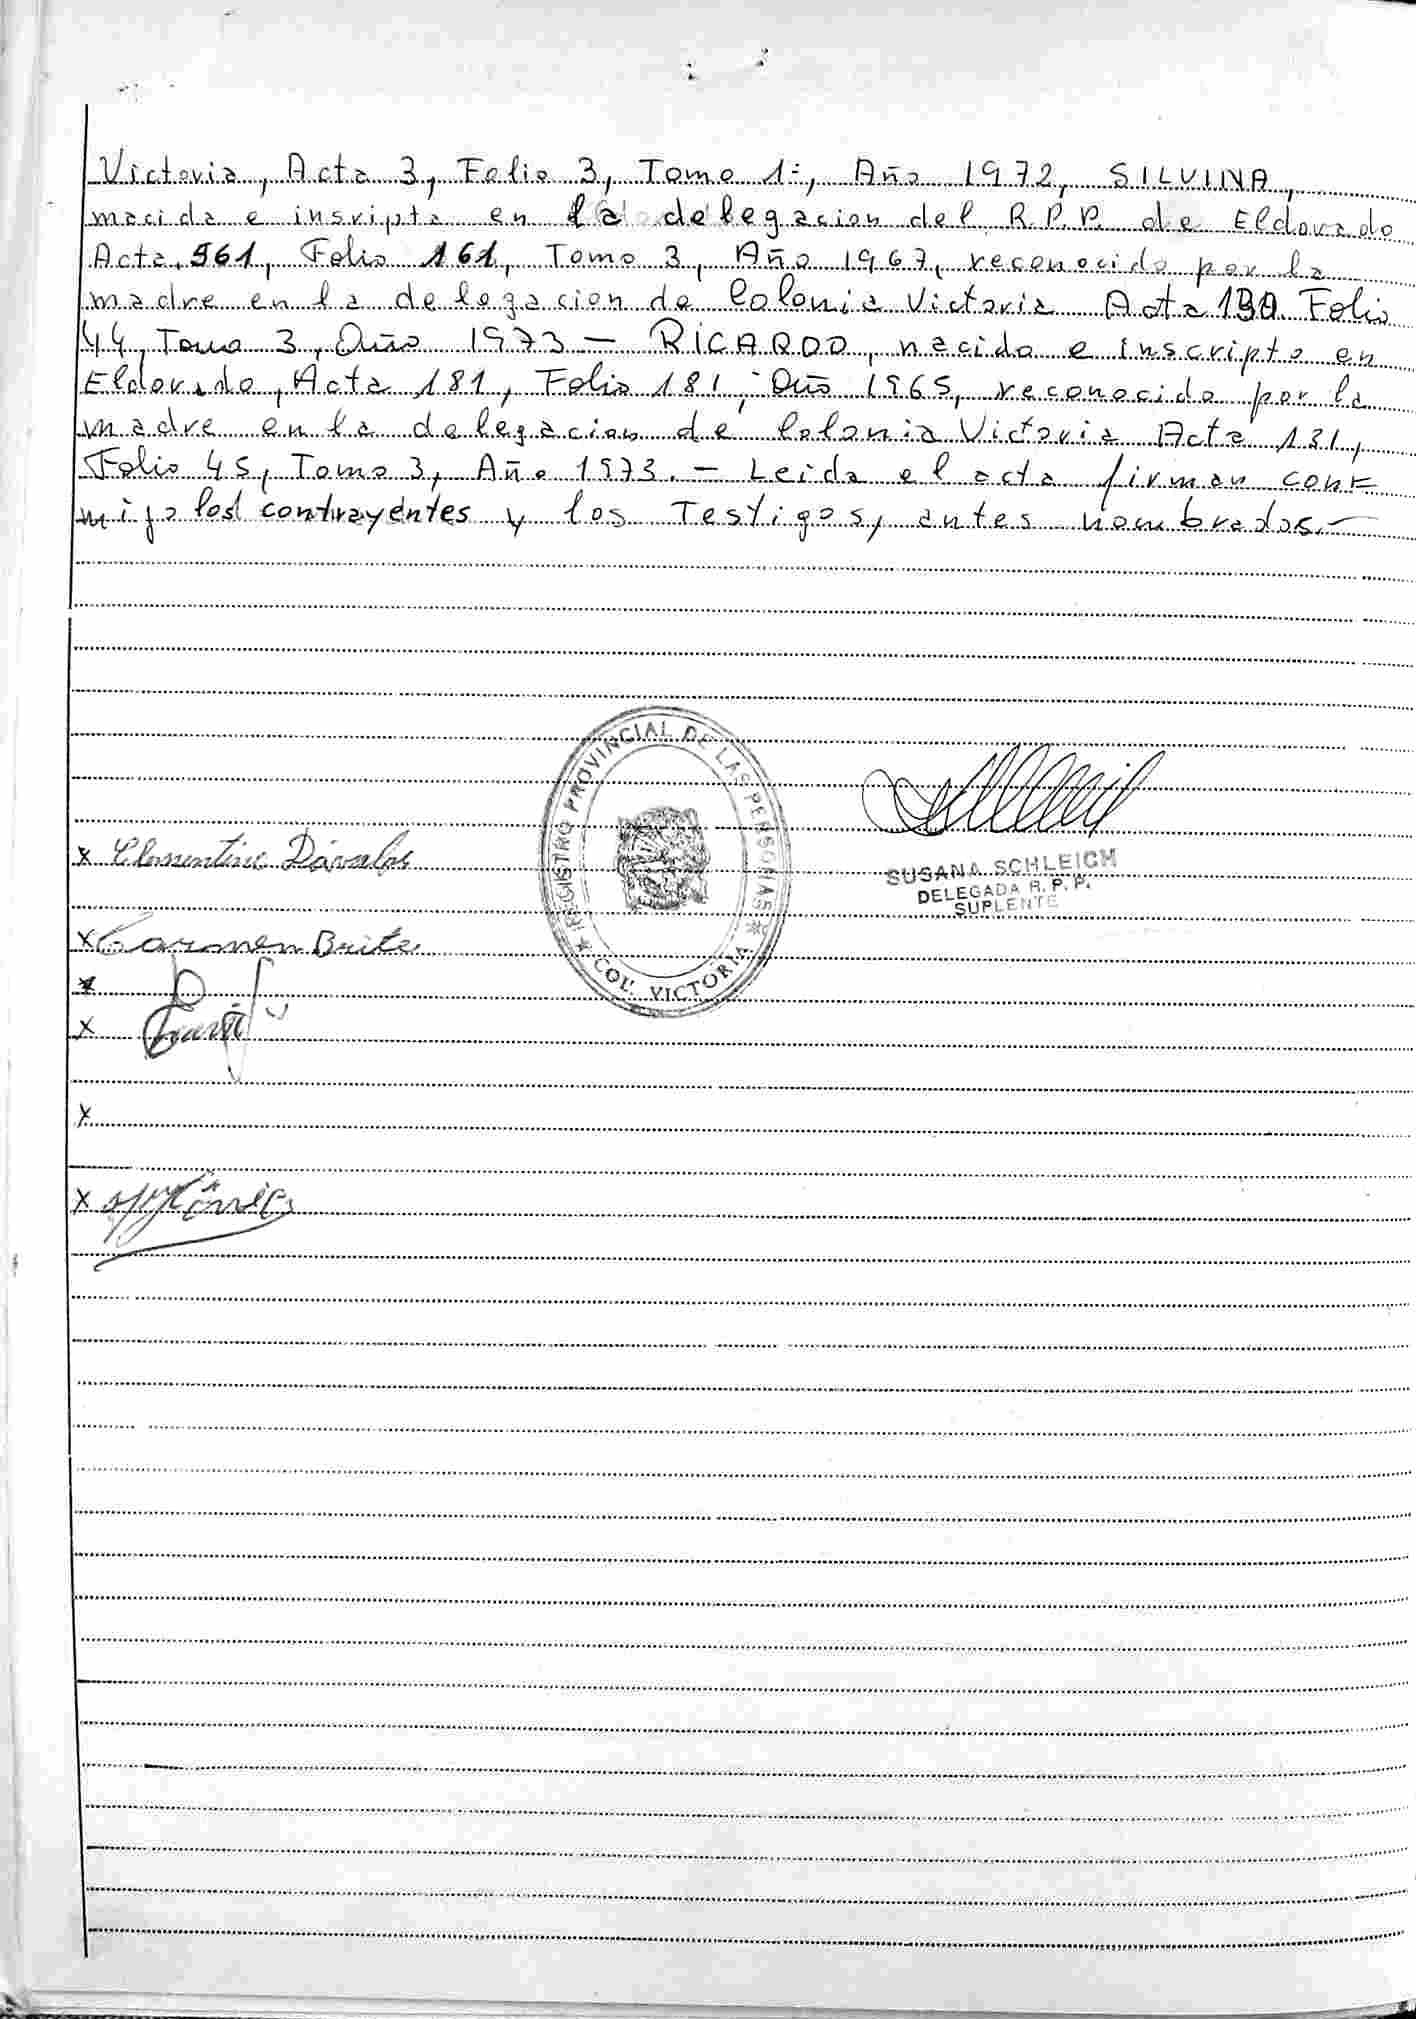 Victoria, Acta 3, Folio 3, Tomo 1:, Año 1972, SILVINA,
nacida e inscripta en la delegacion del R.P.P. de Eldorado
Acta 561, Folio 161, Tomo 3, Año 1967, reconocido por la
madre en la delegacion de Colonia Victoria Acta 130 Folio
44, Tomo 3, Año 1973 — RICARDO, nacido e inscripto en
Eldorado, Acta 181, Folio 181, Año 1965, reconocido por la
madre en la delegacion de Colonia Victoria Acta 131,
Folio 45, Tomo 3, Año 1973. — Leida el acta firman con-
migo los contrayentes y los Testigos, antes nombrados.—
REGISTRO PROVINCIAL DE LAS PERSONAS
* COL. VICTORIA *
SUSANA SCHLEICH
DELEGADA R. P. P.
SUPLENTE
x Clementino Dávalos
x Carmen Brite
x
x
x
x